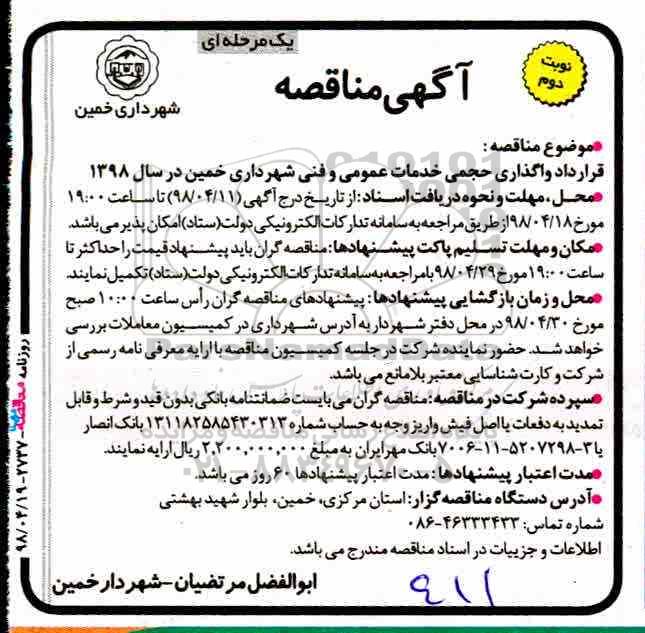 یک مرحله ای
نوبت دوم
آگهی مناقصه
شهرداری خمین
موضوع مناقصه :
قرارداد واگذاری حجمی خدمات عمومی و فنی شهرداری خمین در سال ۱۳۹۸
محل، مهلت و نحوه دریافت اسناد: از تاریخ درج آگهی (۹۸/۰۴/۱۱) تا ساعت ۱۹:۰۰
مورخ ۹۸/۰۴/۱۸ از طریق مراجعه به سامانه تدارکات الکترونیکی دولت (ستاد) امکان پذیر می باشد.
مکان و مهلت تسلیم پاکت پیشنهادها: مناقصه گران باید پیشنهاد قیمت را حداکثر تا
ساعت ۱۹:۰۰ مورخ ۹۸/۰۴/۲۹ با مراجعه به سامانه تدارکات الکترونیکی دولت (ستاد) تکمیل نمایند.
محل و زمان بازگشایی پیشنهادها: پیشنهادهای مناقصه گران رأس ساعت ۱۰:۰۰ صبح
مورخ ۹۸/۰۴/۳۰ در محل دفتر شهردار به آدرس شهرداری در کمیسیون معاملات بررسی
خواهد شد. حضور نماینده شرکت در جلسه کمیسیون مناقصه با ارایه معرفی نامه رسمی از
شرکت و کارت شناسایی معتبر بلامانع می باشد.
سپرده شرکت در مناقصه: مناقصه گران می بایست ضمانتنامه بانکی بدون قید و شرط و قابل
تمدید به دفعات یا اصل فیش واریز وجه به حساب شماره ۱۳۱۱۸۲۵۸۵۴۳۰۳۱۳ بانک انصار
یا ۳-۵۲۰۷۲۹۸-۱۱-۷۰۰۶ بانک مهر ایران به مبلغ ۲,۲۰۰,۰۰۰,۰۰۰ ریال ارایه نمایند.
مدت اعتبار پیشنهادها: مدت اعتبار پیشنهادها ۶۰ روز می باشد.
آدرس دستگاه مناقصه گزار: استان مرکزی، خمین، بلوار شهید بهشتی
شماره تماس: ۴۶۳۳۳۴۳۳-۰۸۶
اطلاعات و جزییات در اسناد مناقصه مندرج می باشد.
ابوالفضل مرتضیان - شهردار خمین
روزنامه مناقصه - ۲۷۳۷ - ۹۸/۰۴/۱۹